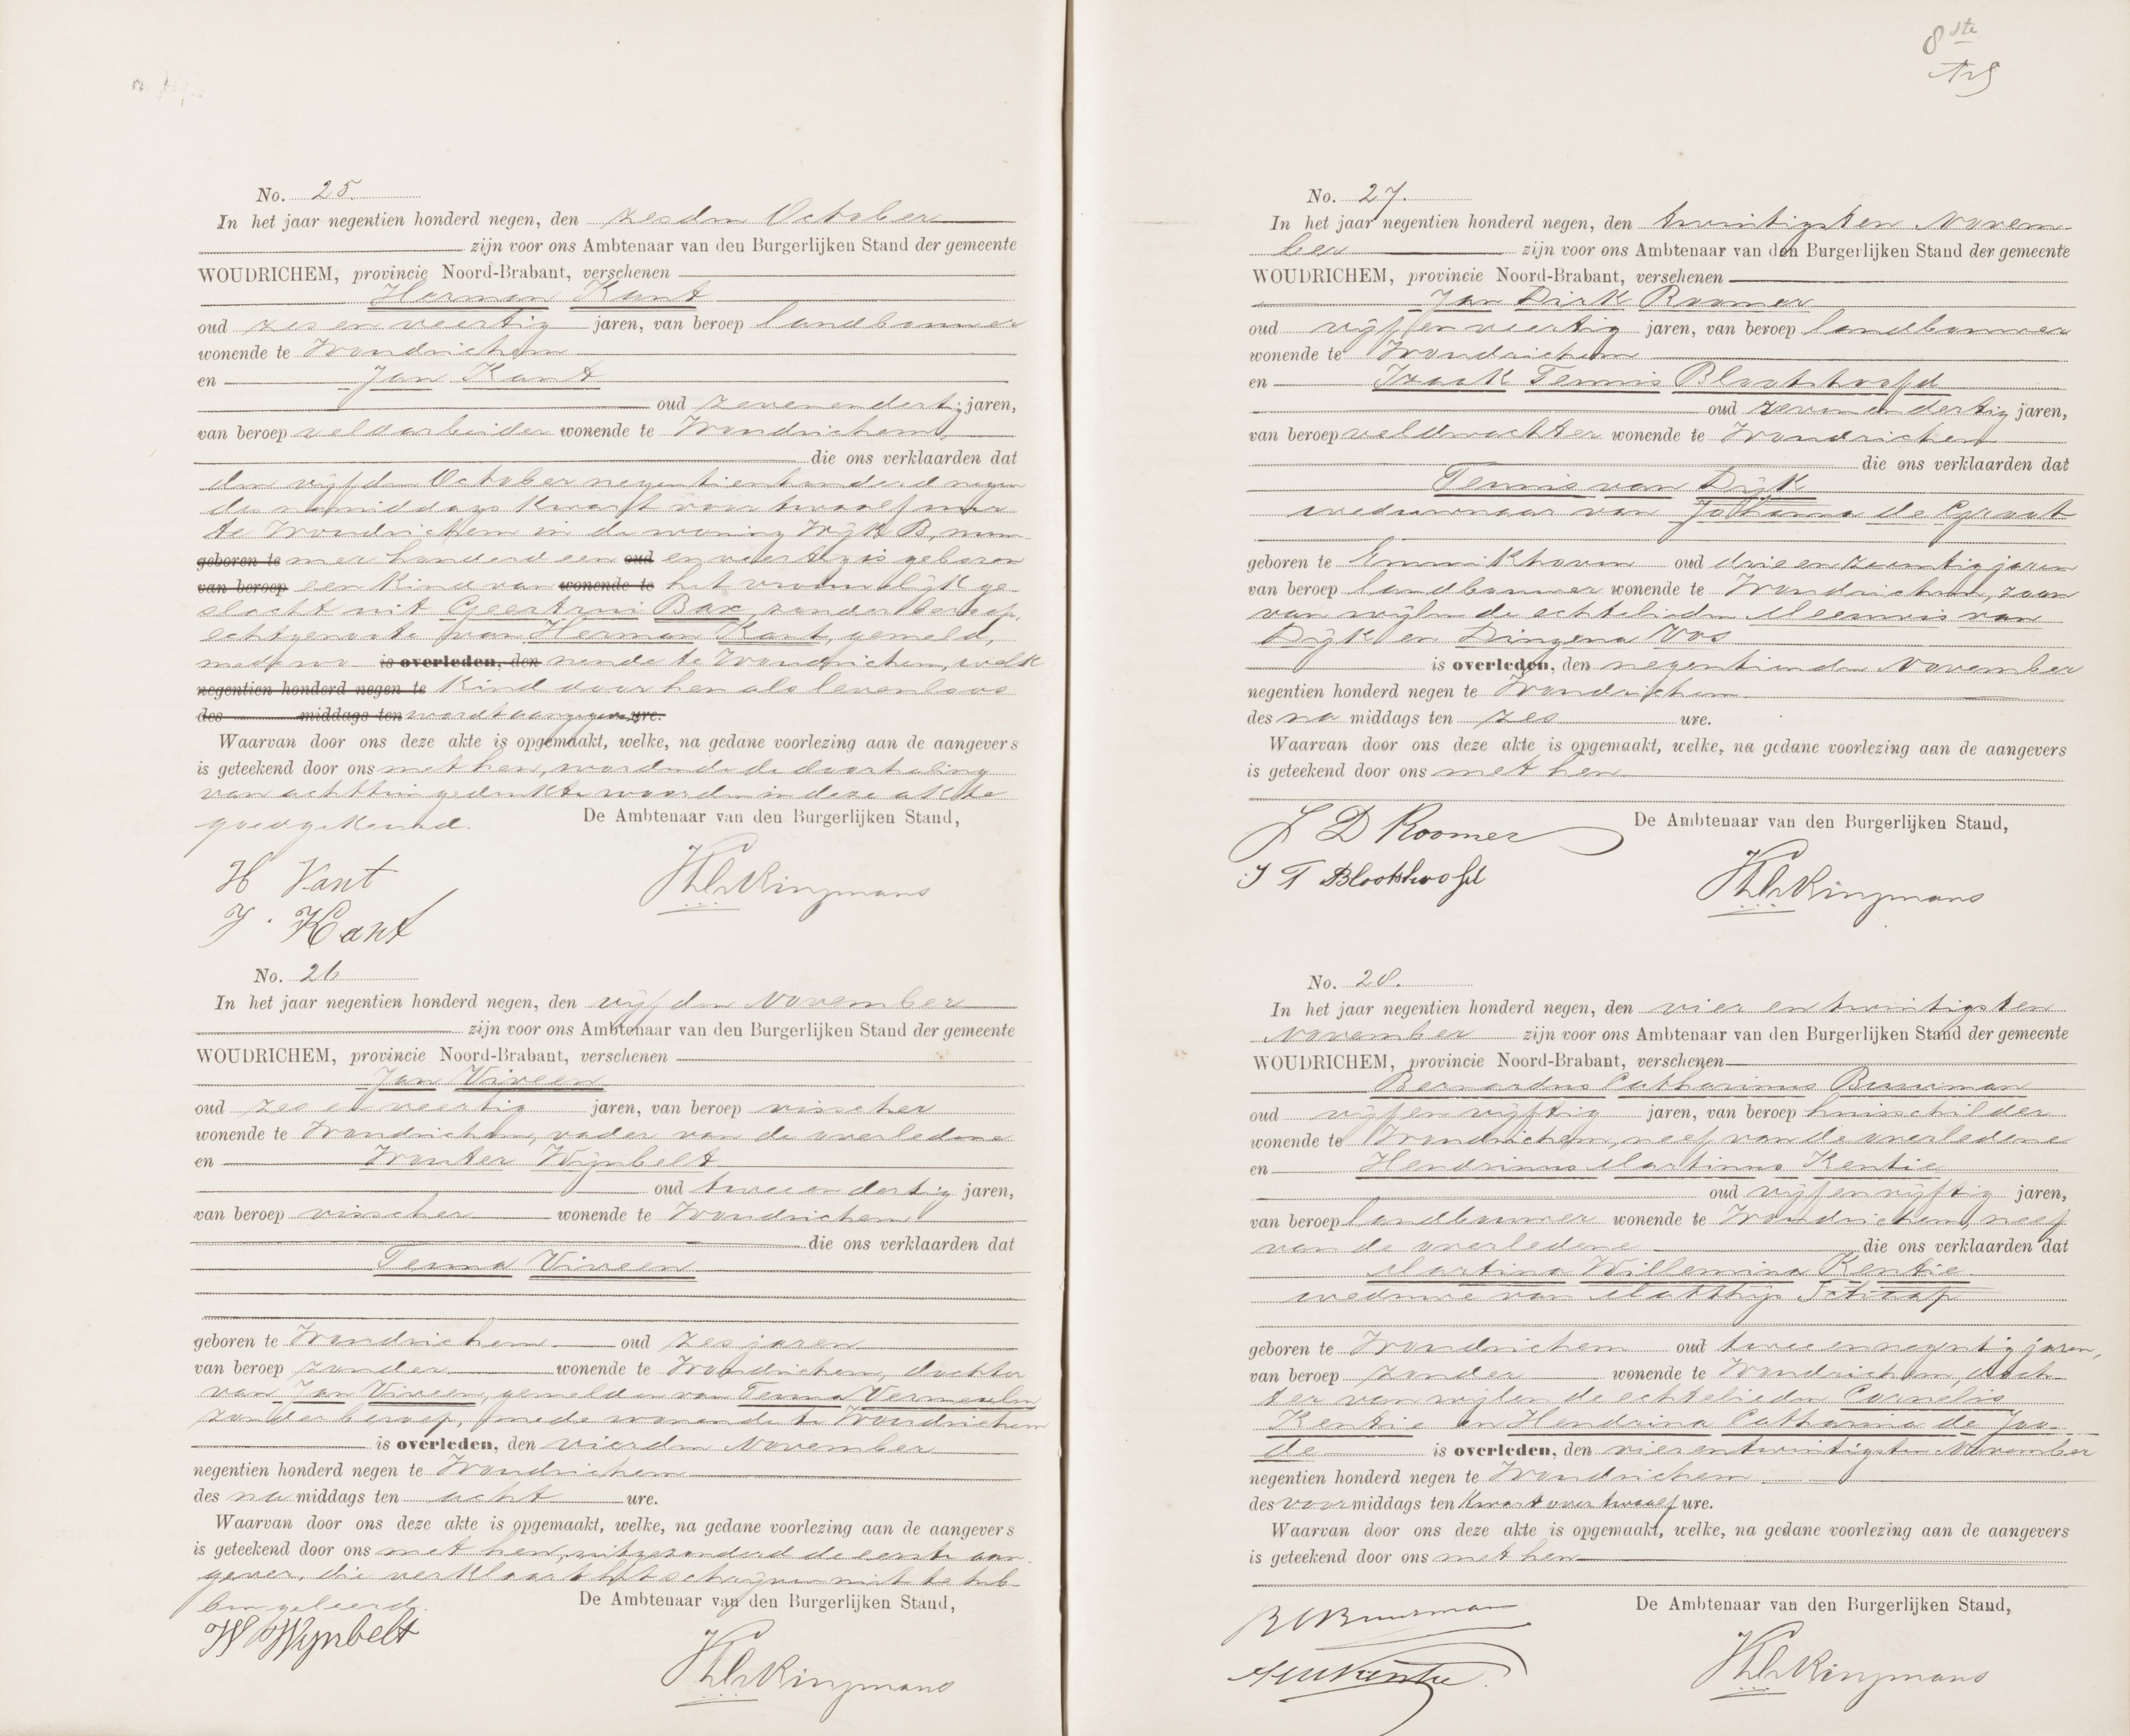 No. 25.
In het jaar negentien honderd negen, den zesden October
zijn voor ons Ambtenaar van den Burgerlijken Stand der gemeente
WOUDRICHEM, provincie Noord-Brabant, verschenen
Herman Kant
oud zes en veertig jaren, van beroep landbouwer
wonende te Woudrichem
en Jan Kant
oud zevenendertig jaren,
van beroep veldarbeider wonende te Woudrichem
die ons verklaarden dat
den vijfden October negentienhonderd negen
des namiddags kwart voor twaalf uur
te Woudrichem in de woning Wijk B, num-
geboren te mer honderd een oud en veertig is geboren
van beroep een kind van wonende te het vrouwelijk ge-
slacht uit Geertrui Bax, zonder beroep,
echtgenoote van Herman Kant, gemeld,
mede wo- is overleden, den nende te Woudrichem, welk
negentien honderd negen te kind door hen als levenloos
des middags ten wordt aangegeven ure.
Waarvan door ons deze akte is opgemaakt, welke, na gedane voorlezing aan de aangevers
is geteekend door ons met hen, wordende de doorhaling
van achttien gedrukte woorden in deze akte
goedgekeurd.
De Ambtenaar van den Burgerlijken Stand,
H Kant
J. Kant
No. 26
In het jaar negentien honderd negen, den vijfden November
zijn voor ons Ambtenaar van den Burgerlijken Stand der gemeente
WOUDRICHEM, provincie Noord-Brabant, verschenen
Jan Viveen
oud zes en veertig jaren, van beroep visscher
wonende te Woudrichem, vader van de overledene
en Wouter Wijnbelt
oud twee en dertig jaren,
van beroep visscher wonende te Woudrichem
die ons verklaarden dat
Teuna Viveen
geboren te Woudrichem oud zes jaren
van beroep zonder wonende te Woudrichem, dochter
van Jan Viveen, gemeld en van Teuna Vermeulen
zonder beroep, mede wonende te Woudrichem
is overleden, den vierden November
negentien honderd negen te Woudrichem
des na middags ten acht ure.
Waarvan door ons deze akte is opgemaakt, welke, na gedane voorlezing aan de aangevers
is geteekend door ons met hen, uitgezonderd de eerste aan-
gever, die verklaart het schrijven niet te heb-
ben geleerd.
De Ambtenaar van den Burgerlijken Stand,
W Wijnbelt
8ste
No. 27.
In het jaar negentien honderd negen, den twintigsten Novem-
ber zijn voor ons Ambtenaar van den Burgerlijken Stand der gemeente
WOUDRICHEM, provincie Noord-Brabant, verschenen
Jan Dirk Roomer
oud vijf en veertig jaren, van beroep landbouwer
wonende te Woudrichem
en Izaak Teunis Blookhoofd
oud zeven en dertig jaren,
van beroep veldwachter wonende te Woudrichem
die ons verklaarden dat
Teunis van Dijk
weduwnaar van Johanna de Graat
geboren te Emmikhoven oud drie en zeventig jaren
van beroep landbouwer wonende te Woudrichem, zoon
van wijlen de echtelieden Meeuwis van
Dijk en Dingena Vos
is overleden, den negentienden November
negentien honderd negen te Woudrichem
des na middags ten zes ure.
Waarvan door ons deze akte is opgemaakt, welke, na gedane voorlezing aan de aangevers
is geteekend door ons met hen
De Ambtenaar van den Burgerlijken Stand,
J D Roomer
No. 28.
In het jaar negentien honderd negen, den vier en twintigsten
November zijn voor ons Ambtenaar van den Burgerlijken Stand der gemeente
WOUDRICHEM, provincie Noord-Brabant, verschenen
Bernardus Catharinus Buurman
oud vijf en vijftig jaren, van beroep huisschilder
wonende te Woudrichem, neef van de overledene
en Hendrinus Martinus Kentie
oud vijf en vijftig jaren,
van beroep landbouwer wonende te Woudrichem, neef
van de overledene die ons verklaarden dat
Martina Willemina Kentie
weduwe van Matthijs
geboren te Woudrichem oud twee en negentig jaren,
van beroep zonder wonende te Woudrichem, doch-
ter van wijlen de echtelieden Cornelis
Kentie en Hendrina Catharina de Joo-
de is overleden, den vierentwintigsten November
negentien honderd negen te Woudrichem
des voormiddags ten kwart over twaalf ure.
Waarvan door ons deze akte is opgemaakt, welke, na gedane voorlezing aan de aangevers
is geteekend door ons met hen
De Ambtenaar van den Burgerlijken Stand,
B C Buurman